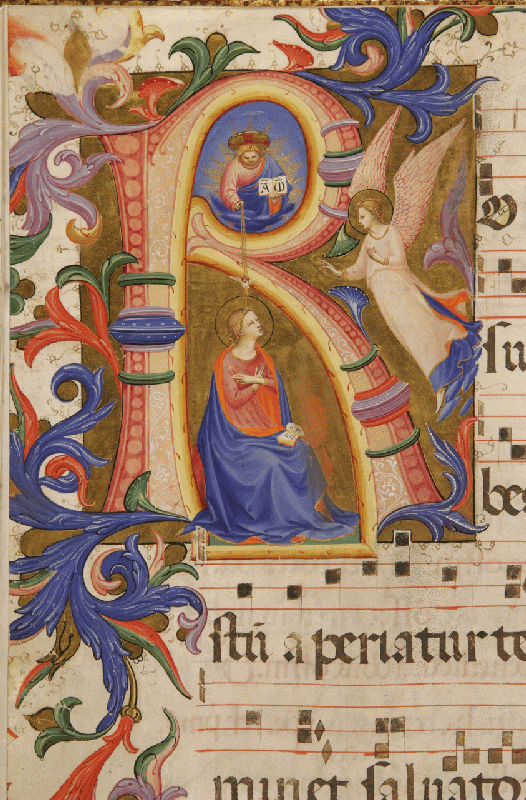 A ω
R O
su
bes
stū aperiatur te
minet saluato